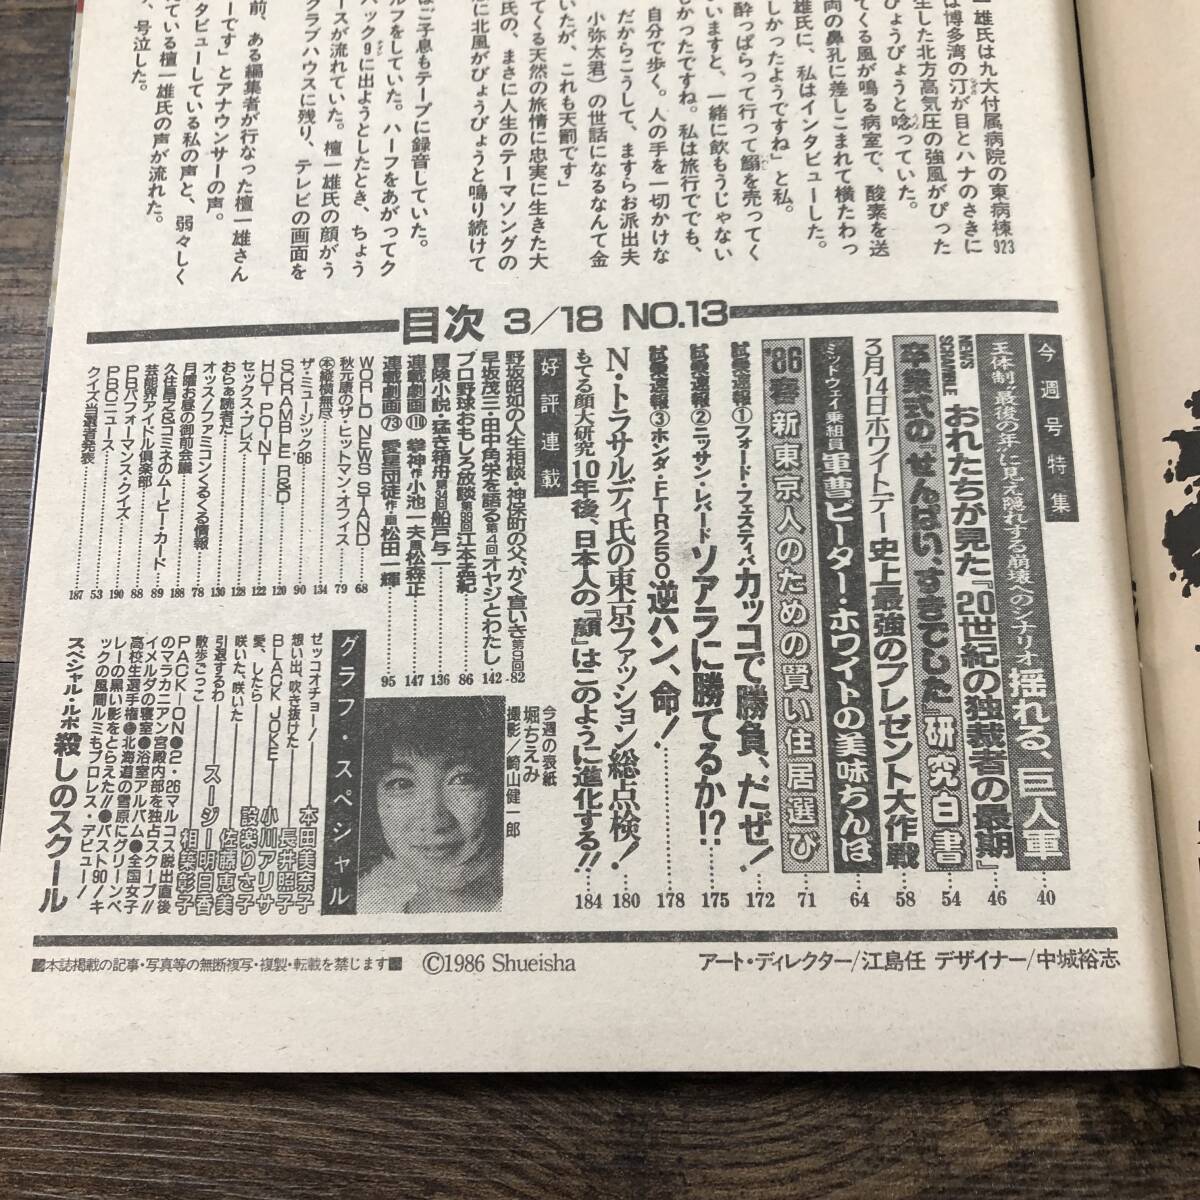 一雄氏は九大付属病院の東病棟923
は博多湾の汀が目とハナのさきに
生した北方高気圧の強風がぴった
びょうびょうと唸っていた。
てくる風が鳴る病室で、酸素を送
両の鼻孔に差しこまれて横たわっ
雄氏に、私はインタビューした。
しかったようですね」と私。
酔っぱらって行って鰯を売ってく
いますと、一緒に飲もうじゃない
しかったですね。私は旅行ででも、
自分で歩く。人の手を一切かけな
だからこうして、ますらお派出夫
小弥太君）の世話になるなんて金
いたが、これも天罰です」
てくる天然の旅情に忠実に生きた大
氏の、まさに人生のテーマソングの
に北風がびょうびょうと鳴り続けて
はご子息もテープに録音していた。
ルフをしていた。ハーフをあがってク
バック9に出ようとしたとき、ちょう
ースが流れていた。檀一雄氏の顔がう
クラブハウスに残り、テレビの画面を
前、ある編集者が行なった檀一雄さん
ーです」とアナウンサーの声。
タビューしている私の声と、弱々しく
ている檀一雄氏の声が流れた。
、号泣した。
目次 3/18 NO.13
今週号特集
王体制"最後の年"に見え隠れする崩壊へのシナリオ 揺れる、巨人軍……40
NEWS SCRAMBLE おれたちが見た『20世紀の独裁者の最期』……46
卒業式の「せんぱい、すきでした」研究白書……54
3月14日ホワイトデー 史上最強のプレゼント大作戦……58
ミッドウェイ乗組員 軍曹ピーター・ホワイトの美味ちんぼ……64
'86春 新東京人のための賢い住居選び……71
試乗速報① フォード・フェスティバ カッコで勝負、だぜ!……172
試乗速報② ニッサン・レパード ソアラに勝てるか!?……175
試乗速報③ ホンダ・FTR250 逆ハン、命!……178
N・トラサルディ氏の東京ファッション総点検!……180
もてる顔大研究 10年後、日本人の『顔』はこのように進化する!!……184
好評連載
野坂昭如の人生相談・神保町の父、かく宣いき 第9回……82
早坂茂三・田中角栄を語る 第4回 オヤジとわたし……142
プロ野球おもしろ放談 第99回 江本孟紀……86
冒険小説・猛き箱舟 第34回 船戸与一……136
連載劇画⑪⓪ 拳神 作 小池一夫 画 松森正……147
連載劇画㉓ 愛星団徒 作・画 松田一輝……95
WORLD NEWS STAND……68
秋元康のザ・ヒットマン・オフィス……79
㊍縦横無尽……134
ザ・ミュージック'86……90
SCRAMBLE R&D……120
HOT POINT……122
セックス・プレス……128
おらぁ読者だ……130
オッス!ファミコンくるくる情報……78
月曜お昼の御前会議……188
久住昌之のコミネのムービー・カード……89
芸能界アイドル倶楽部……88
PBパフォーマンス・クイズ……190
PBCニュース……53
クイズ当選者発表……187
今週の表紙
堀ちえみ
撮影/崎山健一郎
グラフ・スペシャル
ゼッコオチョー!……本田美奈子
想い出、吹き抜けた……長井照子
BLACK JOKE……小川アリサ
愛、したら……設楽りさ子
咲いた、咲いた……佐藤恵美
引退するわ……スージー明日香
散歩ごっこ……相築彰子
PACK-ION●2・26マルコス脱出直後
のマラカニアン宮殿内部を独占スクープ!!
イメルダの寝室●浴室アルバム●全国女子
高校生選手権●北海道の雪原にグリーンベ
レーの黒い影をとらえた!!●バスト90!キ
ックの風間ルミもプロレス・デビュー!
スペシャル・ルポ 殺しのスクール
本誌掲載の記事・写真等の無断複写・複製・転載を禁じます ©1986 Shueisha
アート・ディレクター/江島任 デザイナー/中城裕志